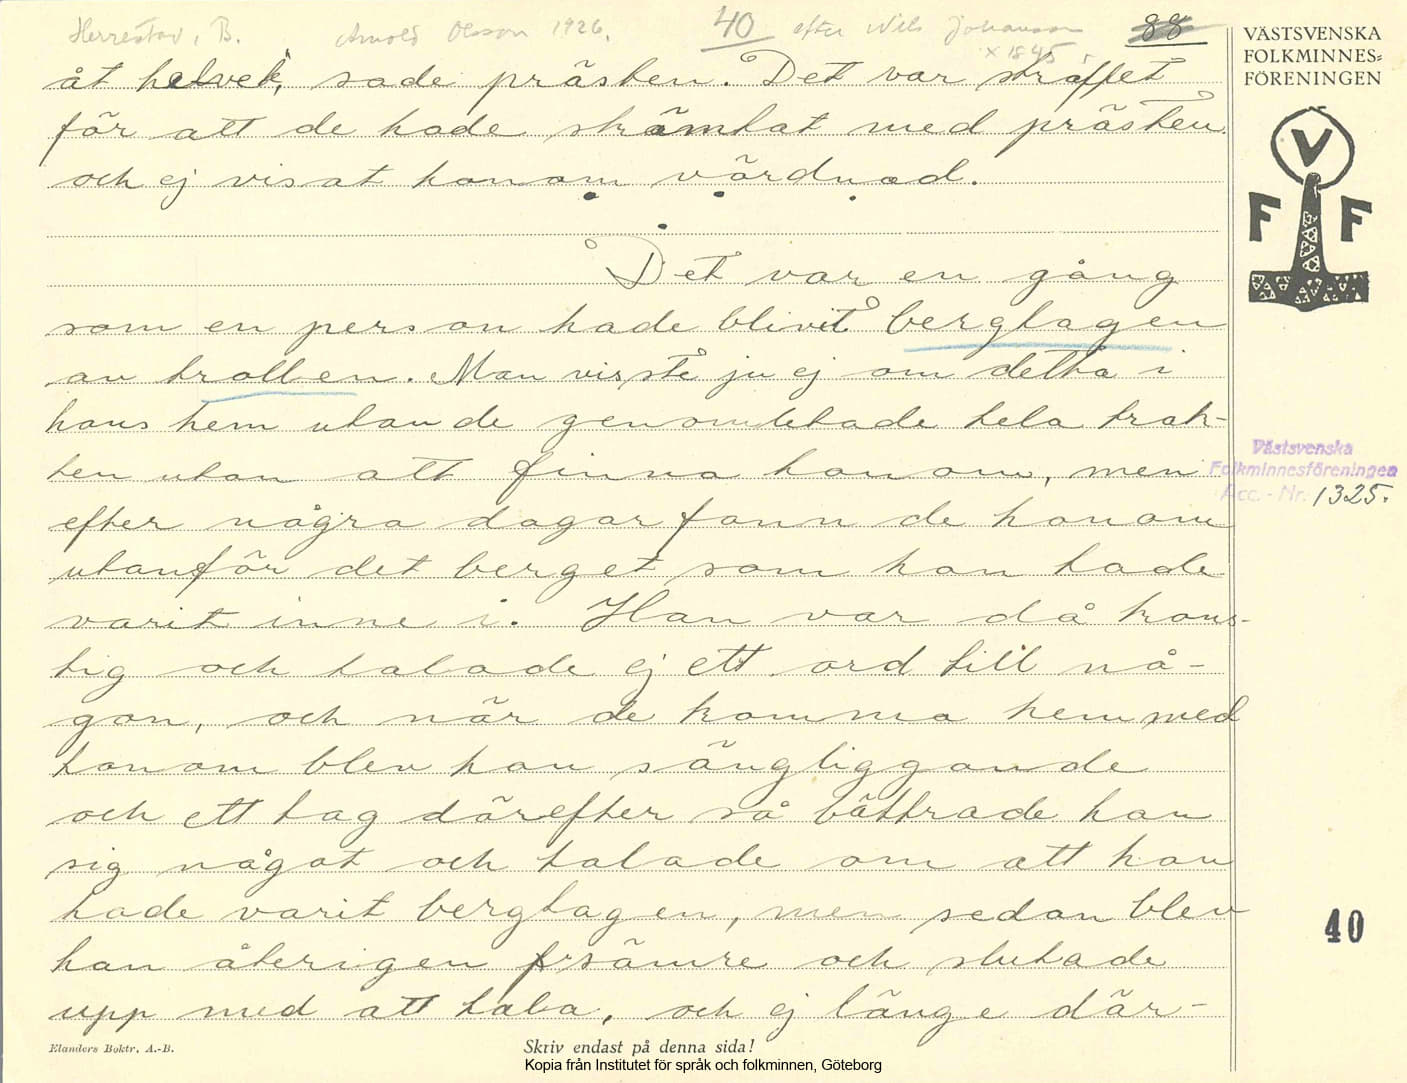 Herrestad, B. Arnold Olsson 1926. 40 efter Nils Johansson 88
x 1845
VÄSTSVENSKA
FOLKMINNES=
FÖRENINGEN
V
F F
åt helvete, sade prästen. Det var straffet
för att de hade skämtat med prästen
och ej visat honom vördnad.
Det var en gång
som en person hade blivit bergtagen
av trollen. Man visste ju ej om detta i
hans hem utan de genomletade hela trak-
ten utan att finna honom, men
efter några dagar fann de honom
utanför det berget som han hade
varit inne i. Han var då kons-
tig och talade ej ett ord till nå-
gon, och när de komma hem med
honom blev han sängliggande
och ett tag därefter så bättrade han
sig något och talade om att han
hade varit bergtagen, men sedan blev
han återigen sämre och slutade
upp med att tala, och ej länge där-
Västsvenska
Folkminnesföreningen
Acc. - Nr. 1325.
40
Elanders Boktr. A.-B.
Skriv endast på denna sida!
Kopia från Institutet för språk och folkminnen, Göteborg